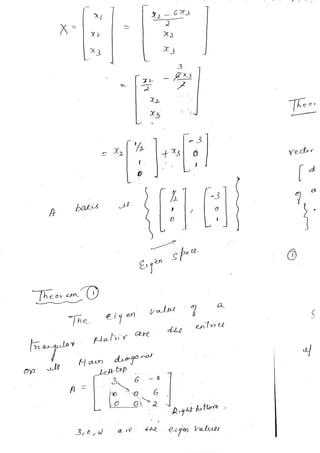 X = [x1 x2 x3] = [x2 - 6x3 / 2, x2, x3]
= [x2/2 - 6x3/2 3, x2, x3]
= x2 [1/2 1 0] + x3 [-3 0 1]
A basis is { [1/2 1 0], [-3 0 1] }
Eigen space.
Theorem ①
The eigen value of a
triangular Matrix are the entries
on its Main diagonal
left top
A = [3 6 -8
0 0 6
0 0 2]
Right bottom.
3, 0, 2 are the eigen values
Theor
vector
①